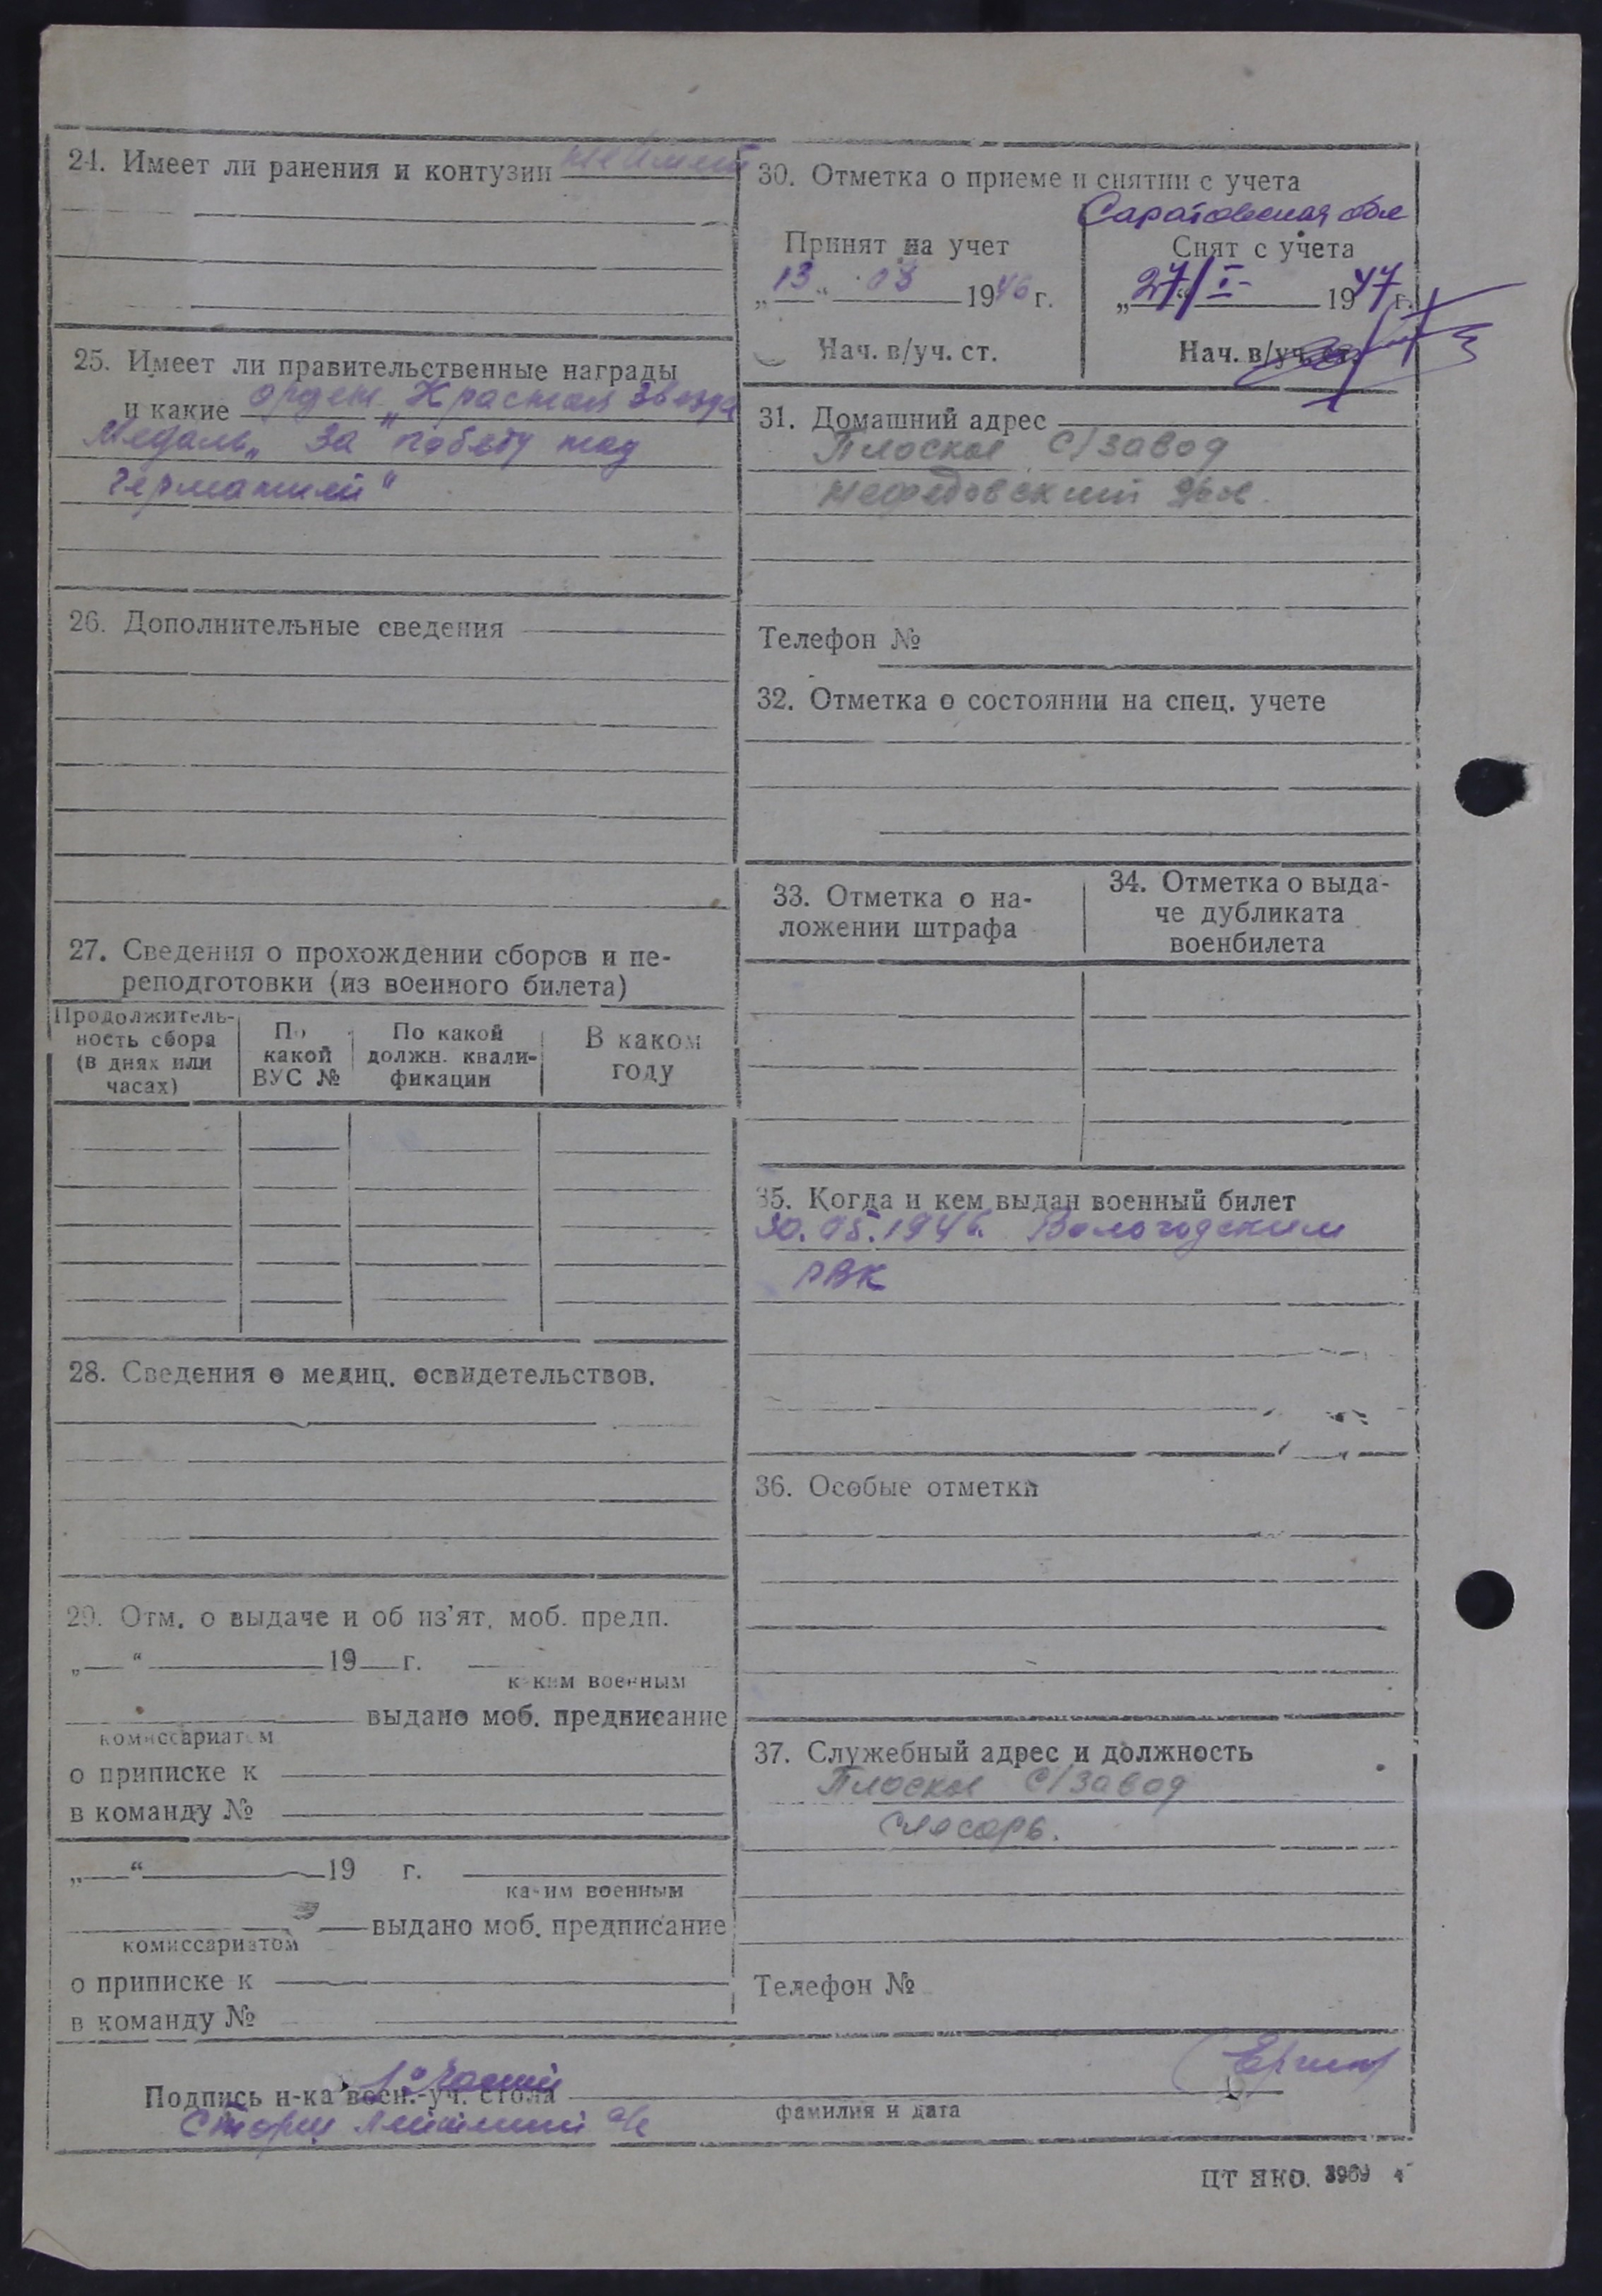 24. Имеет ли ранения и контузии не имеет
25. Имеет ли правительственные награды
и какие орден „Красная звезда
Медаль „За победу над
Германией"
26. Дополнительные сведения
27. Сведения о прохождении сборов и пе-
реподготовки (из военного билета)
Продолжитель-
ность сбора
(в днях или
часах)
По
какой
ВУС №
По какой
должн. квали-
фикации
В каком
году
28. Сведения о медиц. освидетельствов.
29. Отм. о выдаче и об из'ят. моб. предп.
„ “ 19 г.
каким военным
выдано моб. предписание
комиссариатом
о приписке к
в команду №
„ “ 19 г.
каким военным
выдано моб. предписание
комиссариатом
о приписке к
в команду №
30. Отметка о приеме и снятии с учета
Саратовская обл
Принят на учет
„13“ 03 1946 г.
Нач. в/уч. ст.
Снят с учета
„27/I- 1947 г.
Нач. в/уч. ст.
31. Домашний адрес
Плоское С/завод
Нефедовский
Телефон №
32. Отметка о состоянии на спец. учете
33. Отметка о на-
ложении штрафа
34. Отметка о выда-
че дубликата
военбилета
35. Когда и кем выдан военный билет
30.05.1946. Вологодским
РВК
36. Особые отметки
37. Служебный адрес и должность
Плоское С/завод
слесарь.
Телефон №
Подпись н-ка воен.-уч. стола
фамилия и дата
ЦТ НКО. 3969